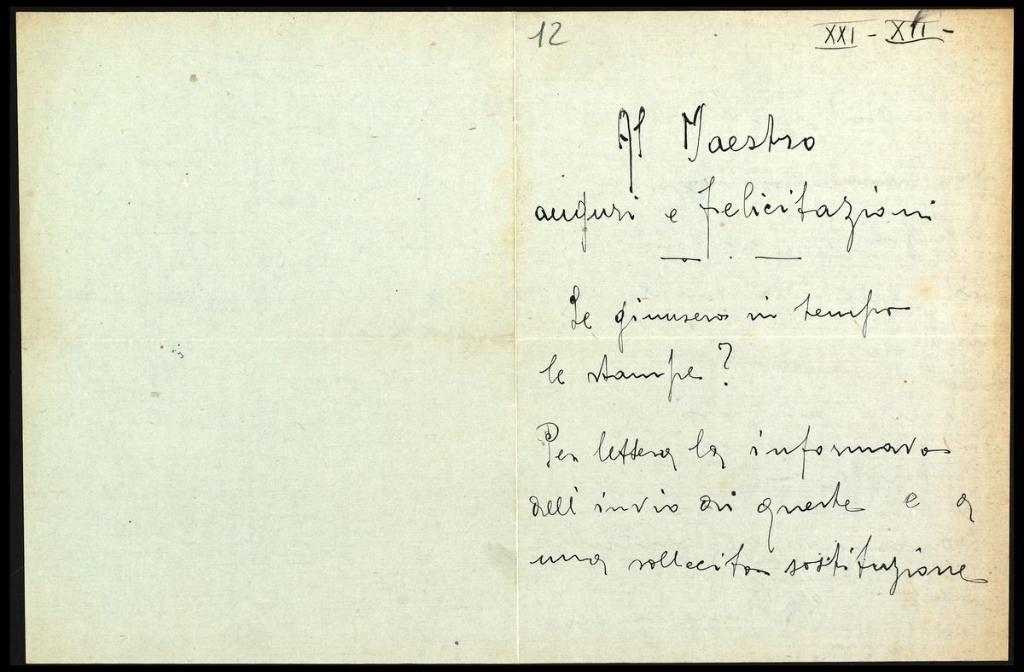 12
XXI - XII -
Al Maestro
auguri e felicitazioni
Le giunsero in tempo
le stampe?
Per lettera la informavo
dell'invio di queste e a
una sollecita sostituzione